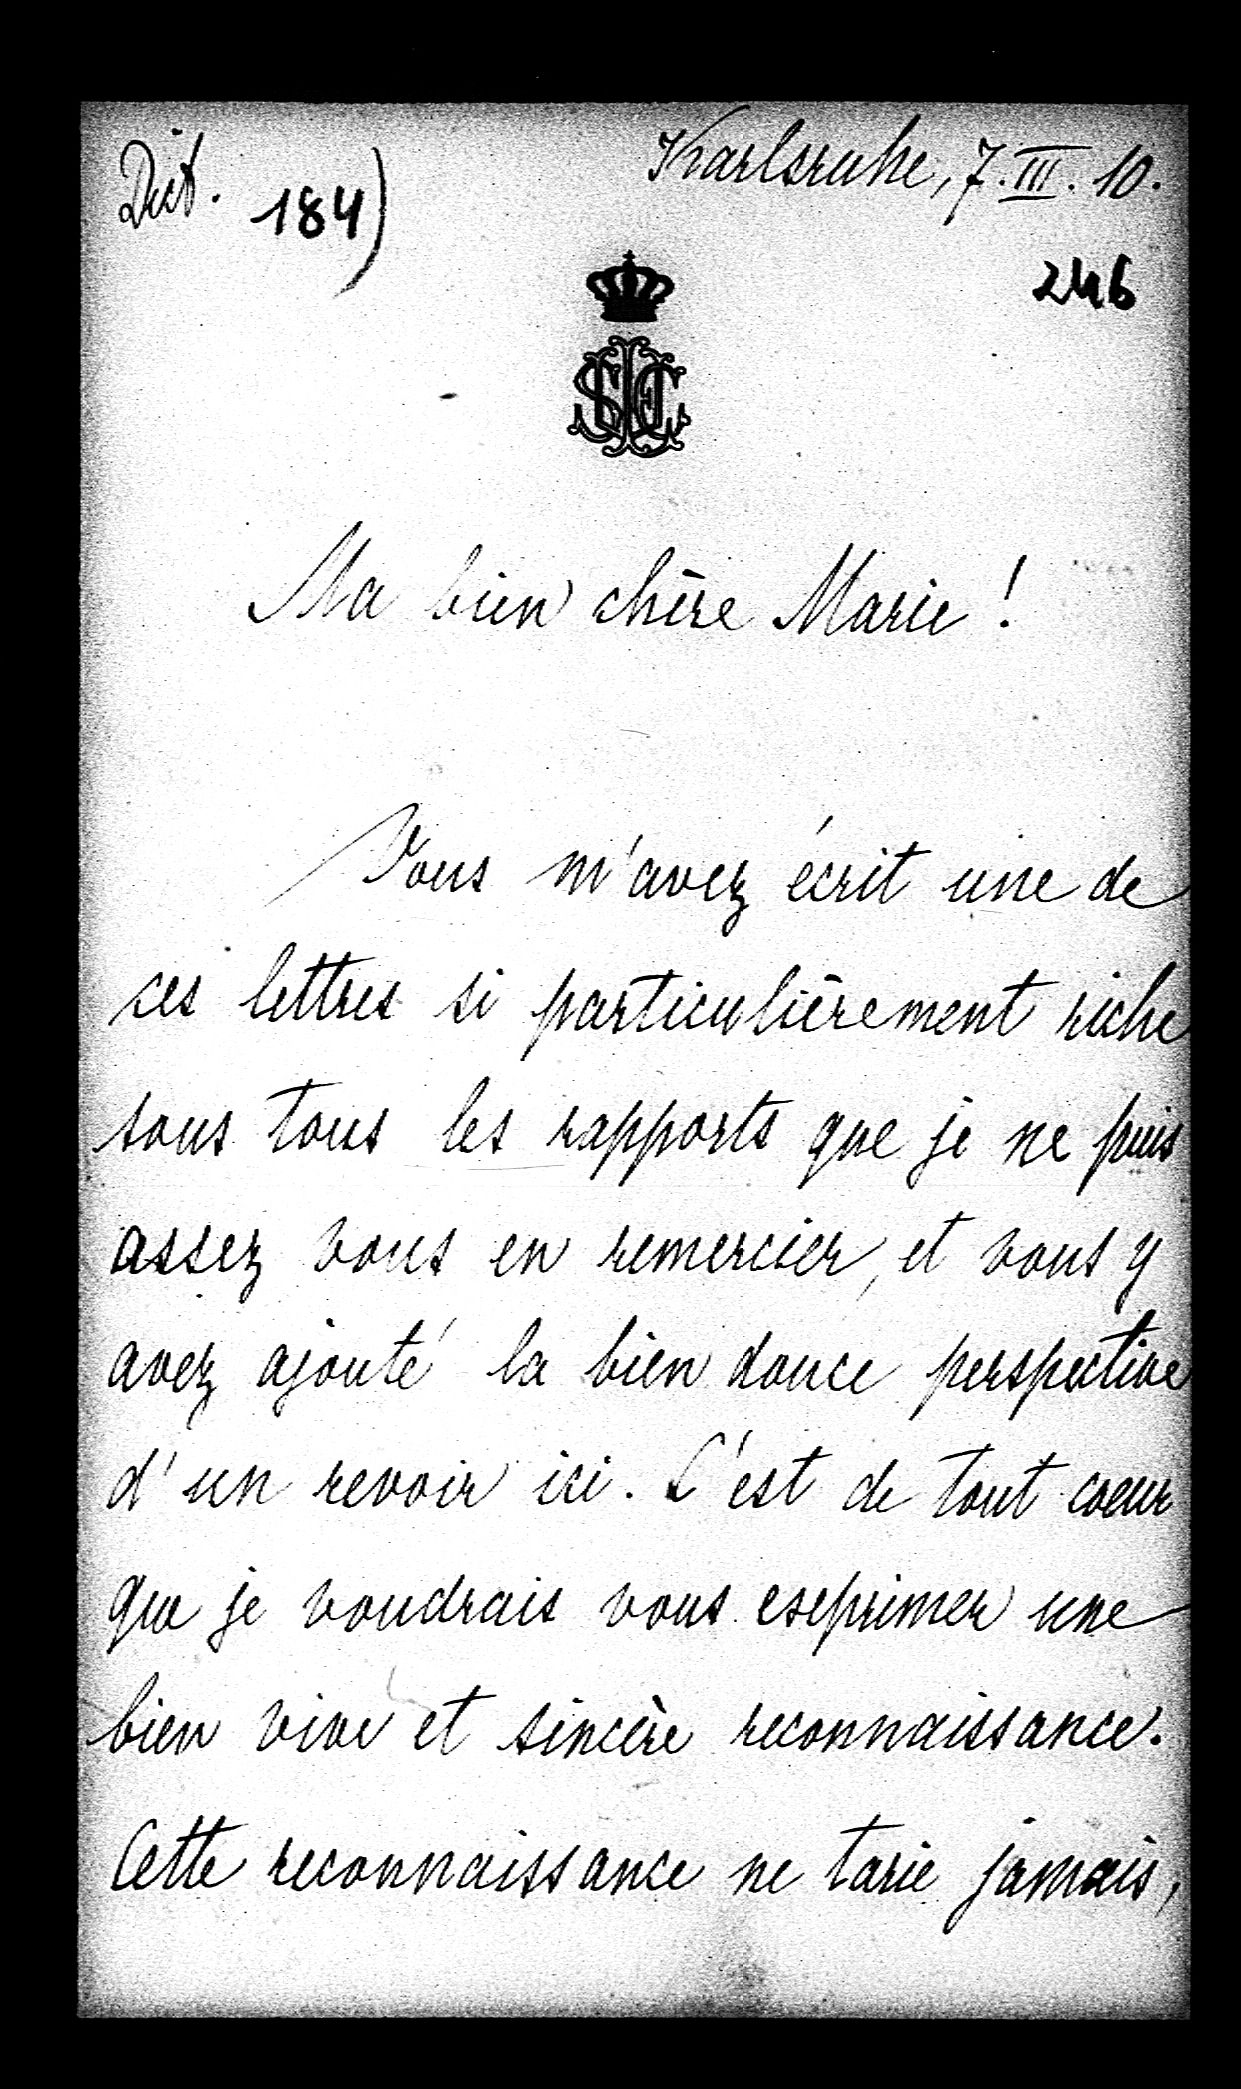 Dict. 184)
Karlsruhe, 7. III. 10.
246
Ma bien chère Marie !
Vous m'avez écrit une de
ces lettres si particulièrement riche
sous tous les rapports que je ne puis
assez vous en remercier, et vous y
avez ajouté la bien douce perspective
d'un revoir ici. C'est de tout coeur
que je voudrais vous exprimer une
bien vive et sincère reconnaissance.
Cette reconnaissance ne tarie jamais,